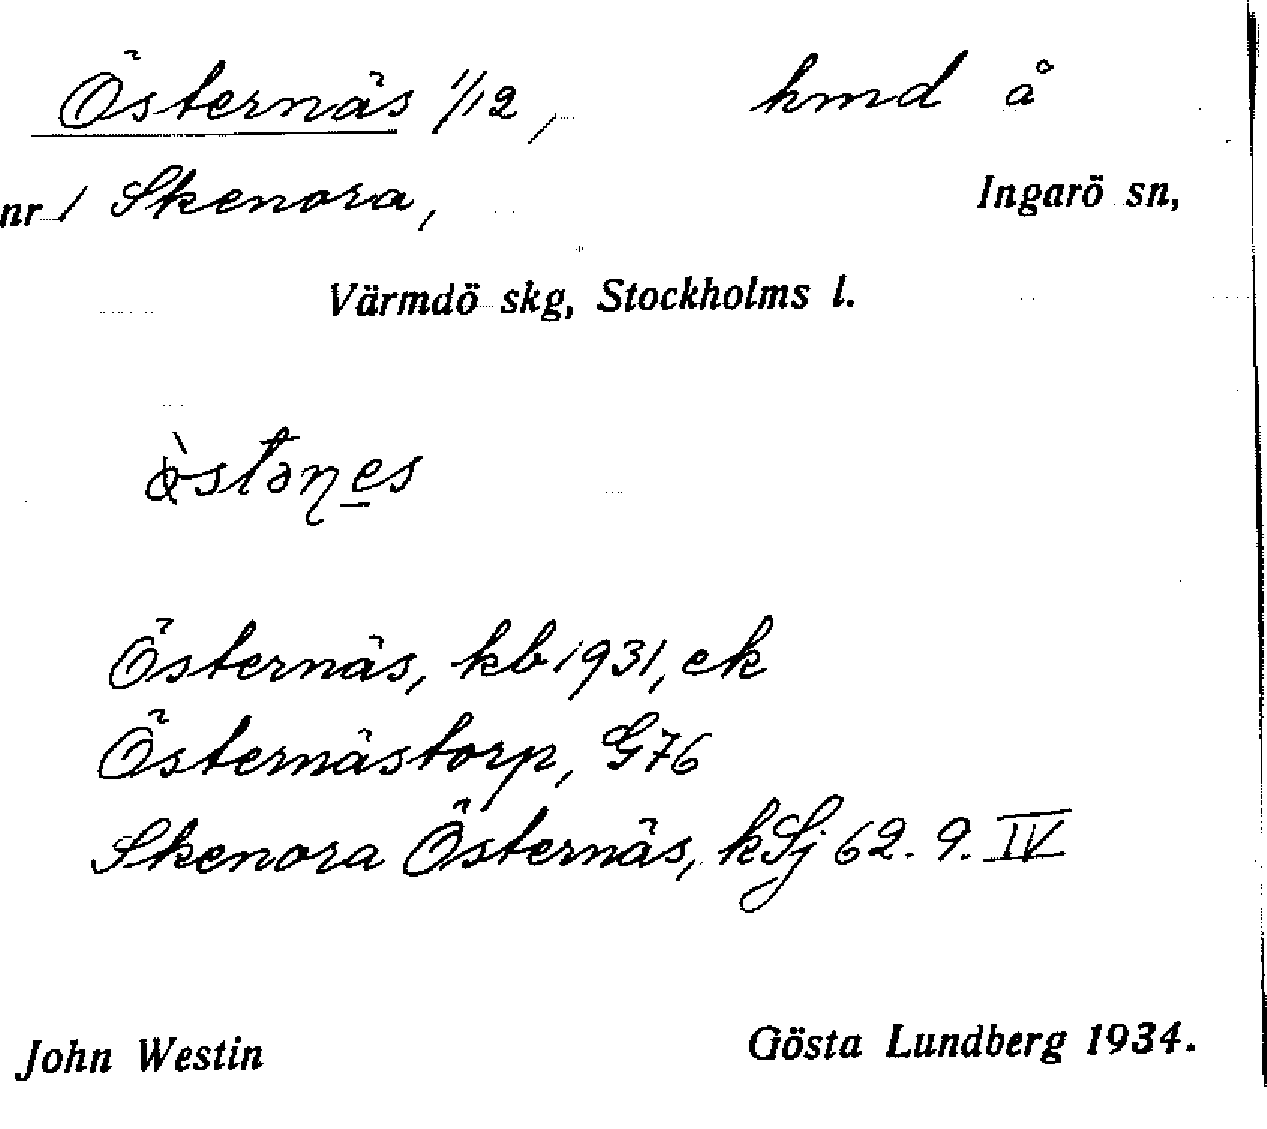 Östernäs 1/12, hmd å
nr 1 Skenora, Ingarö sn,
Värmdö skg, Stockholms l.
Östernäs, kb 1931, ek
Östernästorp, G76
Skenora Östernäs, kSj 62. 9. IV
John Westin Gösta Lundberg 1934.